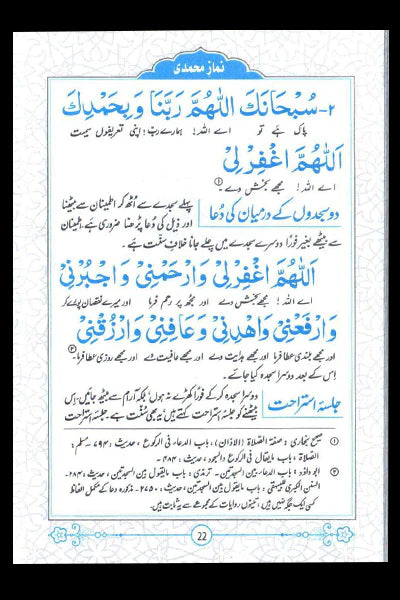 نماز محمدی
۲- سُبْحَانَكَ اللّٰهُمَّ رَبَّنَا وَبِحَمْدِكَ
پاک ہے تو اے اللہ! ہمارے رب! اپنی تعریفوں سمیت
اَللّٰهُمَّ اغْفِرْ لِیْ
اے اللہ! مجھے بخش دے۔ ①
دو سجدوں کے درمیان کی دُعا
پہلے سجدے سے اُٹھ کر اطمینان سے بیٹھنا
اور ذیل کی دُعا پڑھنا ضروری ہے، اطمینان
سے بیٹھے بغیر فوراً دوسرے سجدے میں چلے جانا خلافِ سنّت ہے۔
اَللّٰهُمَّ اغْفِرْ لِیْ وَارْحَمْنِیْ وَاجْبُرْنِیْ
اے اللہ! مجھے بخش دے اور مجھ پر رحم فرما اور میرے نقصان پورے کر
وَارْفَعْنِیْ وَاهْدِنِیْ وَعَافِنِیْ وَارْزُقْنِیْ
اور مجھے بلندی عطا فرما اور مجھے ہدایت دے اور مجھے عافیت دے اور مجھے روزی عطا فرما۔ ②
اِس کے بعد دوسرا سجدہ کیا جائے۔
جلسۂ استراحت
دوسرا سجدہ کر کے فوراً کھڑے نہ ہوں بلکہ آرام سے بیٹھ جائیں۔ اِس
بیٹھنے کو جلسۂ استراحت کہتے ہیں، یہ بھی سُنّت ہے۔ جلسۂ استراحت
① صحیح بخاری: صفة الصلاة (الاذان)، باب الدعاء فی الرکوع، حدیث: ۷۹۴، مسلم:
الصلاة، باب مایقال فی الرکوع والسجود، حدیث: ۴۸۴۔
② ابوداؤد: باب الدعاء بین السجدتین۔ ترمذی: باب مایقول بین السجدتین، حدیث: ۲۸۴،
السنن الکبریٰ للبیہقی: باب مایقول بین السجدتین، حدیث: ۲۷۵۰۔ مذکورہ دعا کے مکمل الفاظ
کسی ایک جگہ نہیں ہیں، تینوں روایات کے مجموعے سے یہ ثابت ہیں۔
22